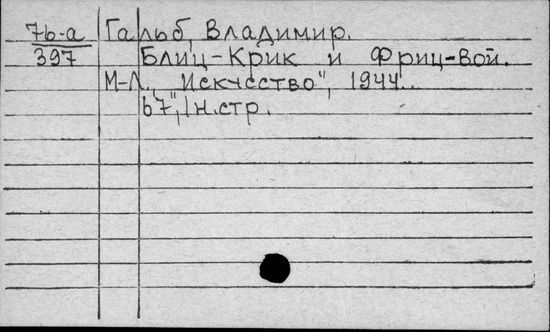 76-а
397
Гальб, Владимир.
Блиц-Крик и Фриц-вой.
М-Л., "Искусство", 1944.
67, 1 н.стр.